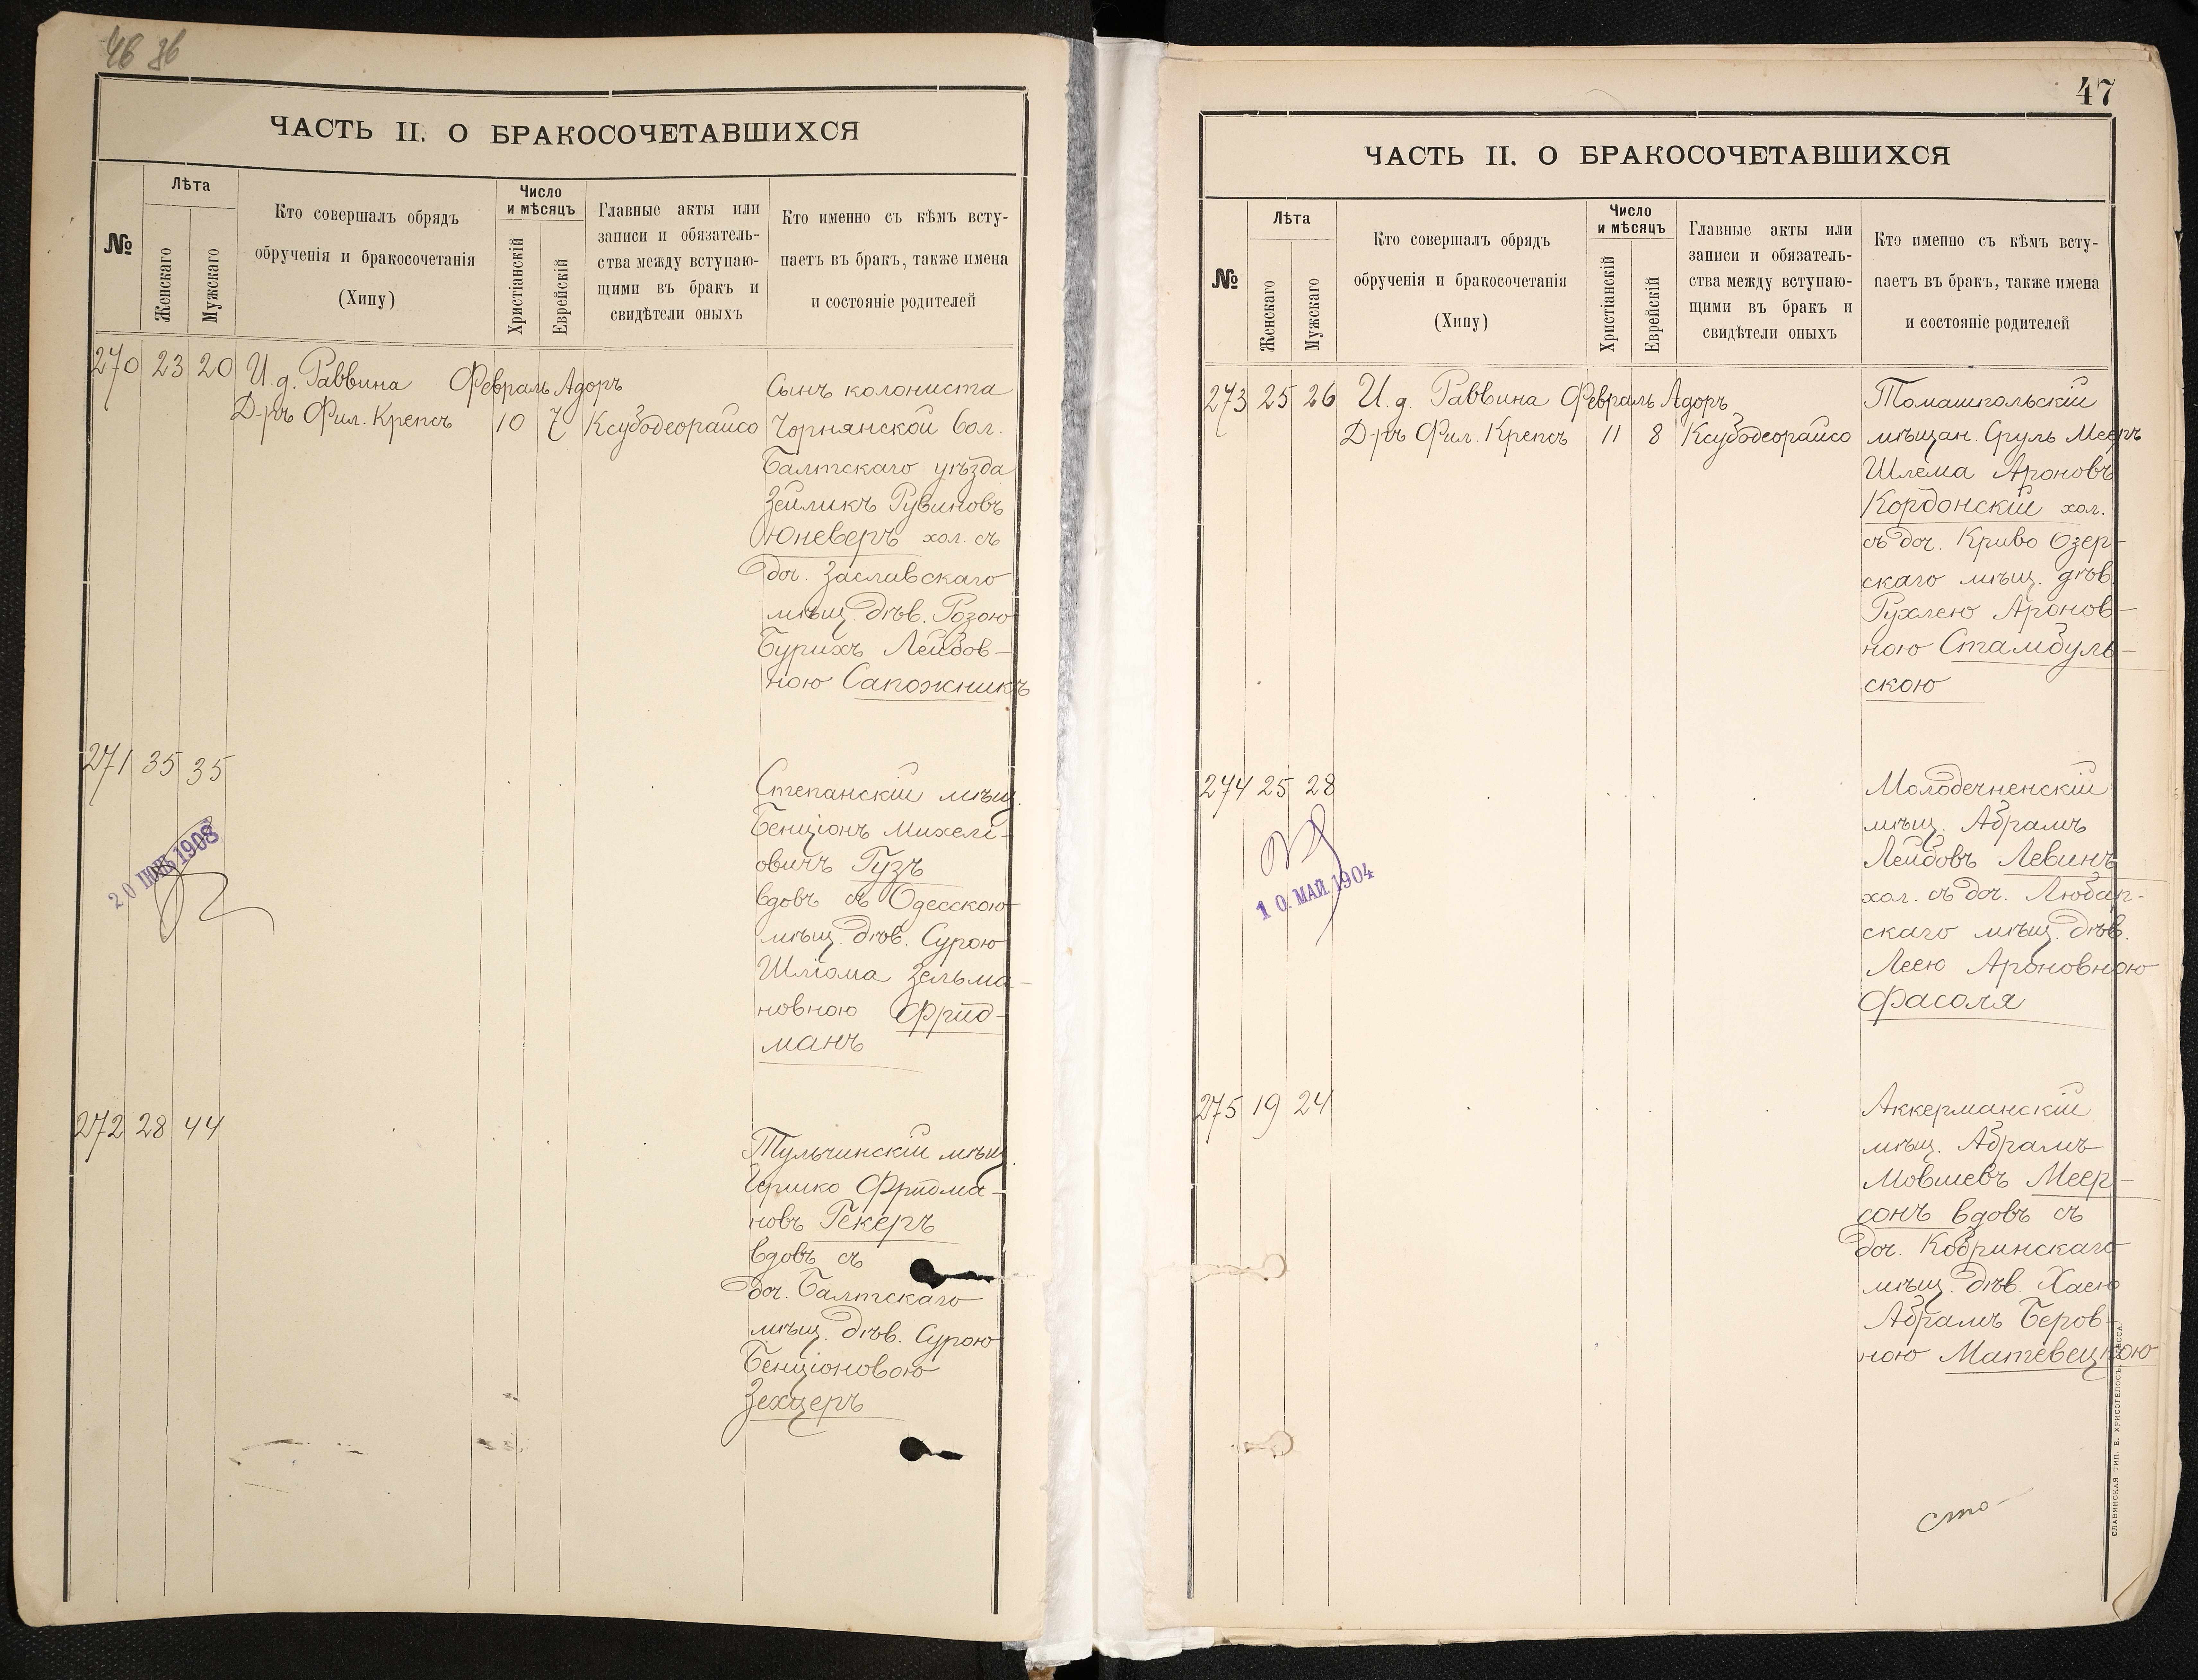 46 36
ЧАСТЬ II. О БРАКОСОЧЕТАВШИХСЯ
№
Лѣта
Женскаго
Мужскаго
Кто совершалъ обрядъ
обрученія и бракосочетанія
(Хипу)
Число
и мѣсяцъ
Христіанскій
Еврейскій
Главные акты или
записи и обязатель-
ства между вступаю-
щими въ бракъ и
свидѣтели оныхъ
Кто именно съ кѣмъ всту-
паетъ въ бракъ, также имена
и состояніе родителей
270 23 20 И. д. Раввина Февраль Адоръ
Д-ръ Фил. Крепсъ 10 7 Ксубодеорайсо
Сынъ колониста
Чорнянской вол.
Балтскаго уѣзда
Зейликъ Рувиновъ
Юневеръ хол. съ
доч. Заславскаго
мѣщ. дѣв. Розою
Бурихъ Лейбов-
ною Сапожникъ
271 35 35
Степанскій мѣщ.
Бенціонъ Михелі-
овичъ Гузъ
вдовъ съ Одесскою
мѣщ. дѣв. Сурою
Шліома Зельма-
новною Фрид-
манъ
20 1908
272 28 44
Тульчинскій мѣщ.
Гершко Фридма-
новъ Гекеръ
вдовъ съ
доч. Балтскаго
мѣщ. дѣв. Сурою
Бенціоновою
Зехцеръ
47
ЧАСТЬ II. О БРАКОСОЧЕТАВШИХСЯ
№
Лѣта
Женскаго
Мужскаго
Кто совершалъ обрядъ
обрученія и бракосочетанія
(Хипу)
Число
и мѣсяцъ
Христіанскій
Еврейскій
Главные акты или
записи и обязатель-
ства между вступаю-
щими въ бракъ и
свидѣтели оныхъ
Кто именно съ кѣмъ всту-
паетъ въ бракъ, также имена
и состояніе родителей
273 25 26 И. д. Раввина Февраль Адоръ
Д-ръ Фил. Крепсъ 11 8 Ксубодеорайсо
Томашпольскій
мѣщан. Сруль Мееръ
Шлема Ароновъ
Кордонскій хол.
съ доч. Криво Озер-
скаго мѣщ. дѣв.
Рухлею Аронов-
ною Стамбуль-
скою
274 25 28
Молодечненскій
мѣщ. Абрамъ
Лейбовъ Левинъ
хол. съ доч. Любар-
скаго мѣщ. дѣв.
Леею Ароновною
Фасоля
10. МАЙ 1904
275 19 24
Аккерманскій
мѣщ. Абрамъ
Мовшевъ Меер-
сонъ вдовъ съ
доч. Кобринскаго
мѣщ. дѣв. Хаею
Абрамъ Беров-
ною Матевецкою
сто-
СЛАВЯНСКАЯ ТИП. Е. ХРИСОГЕЛОСЪ, ОДЕССА.